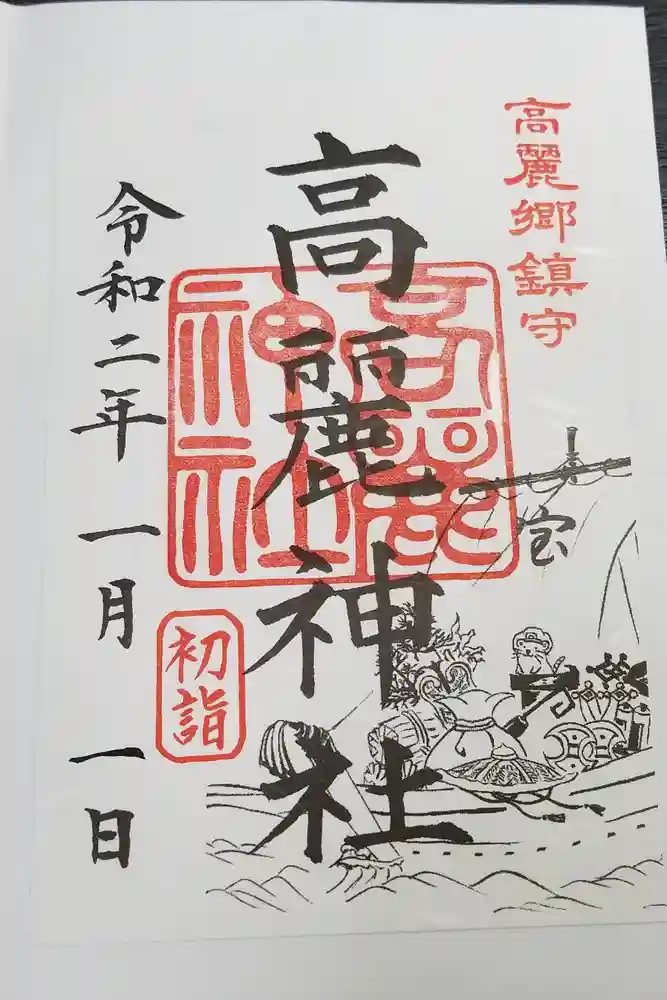 高麗郷鎮守
高麗神社
高麗
神社
宝
令和二年 一月 一日
初詣